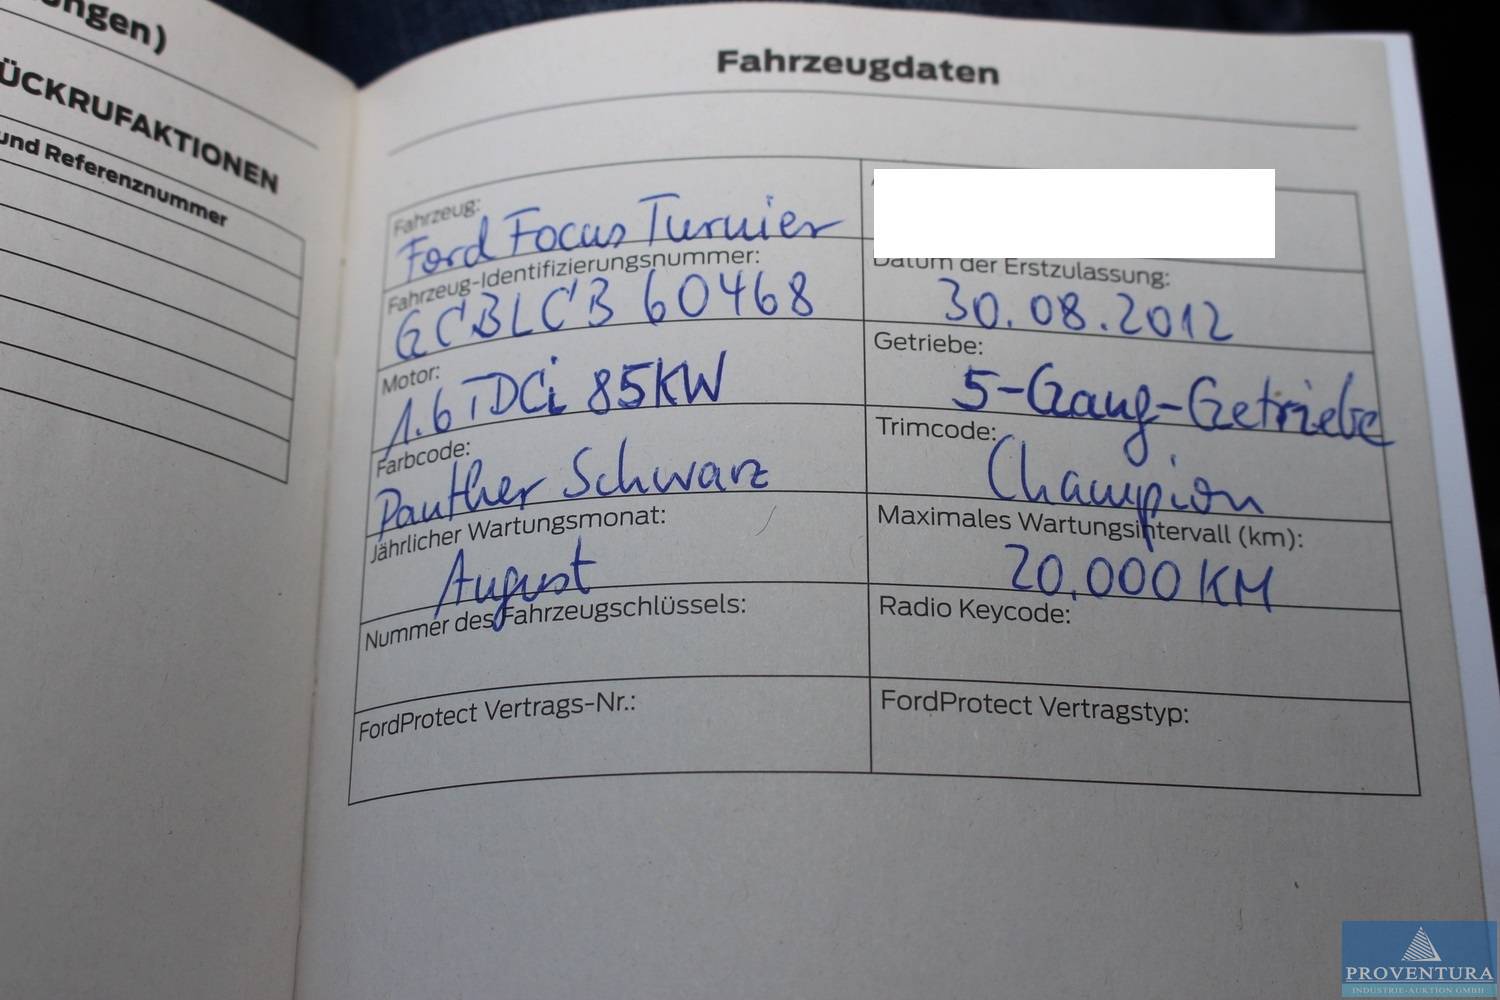 ungen)
ÜCKRUFAKTIONEN
und Referenznummer
Fahrzeugdaten
Fahrzeug:
Ford Focus Turnier
Fahrzeug-Identifizierungsnummer:
GCBLCB60468
Datum der Erstzulassung:
30.08.2012
Motor:
1.6 TDCi 85KW
Getriebe:
5-Gang-Getriebe
Farbcode:
Panther Schwarz
Trimcode:
Champion
Jährlicher Wartungsmonat:
August
Maximales Wartungsintervall (km):
20.000 KM
Nummer des Fahrzeugschlüssels:
Radio Keycode:
FordProtect Vertrags-Nr.:
FordProtect Vertragstyp:
PROVENTURA
INDUSTRIE-AUKTION GMBH